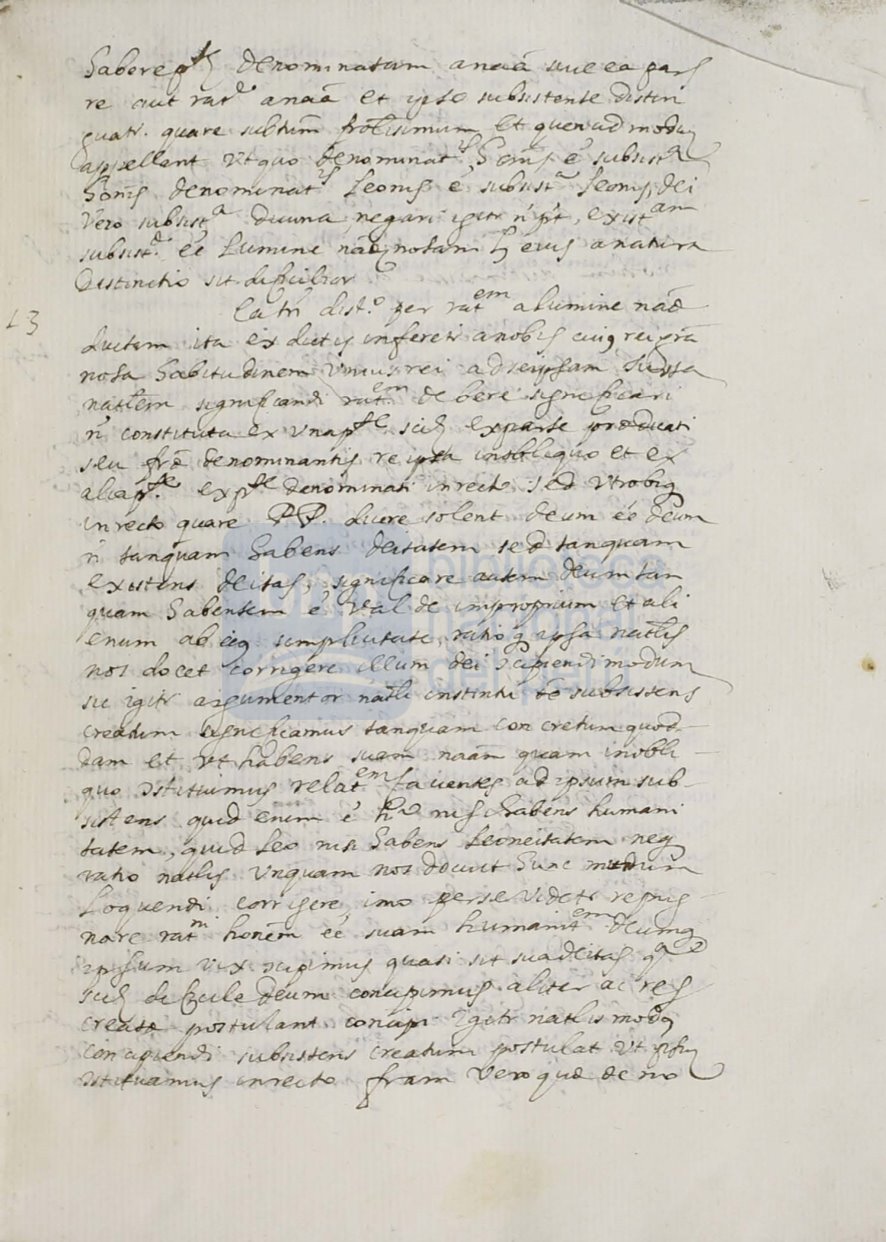 habere denominatum anaâ siue ea par
re aut ratᵉ anaâ et ipso subsistente distin
guatr. quare subtilm et quenadmodu
appellent vt quo denominatⁱˢ homs é subsistᵃ
homis denominatⁱˢ Leonis é subsistᵃ Leonis, dei
vero subsistᵃ diuina, negari igitr existᵃᵐ
subsistᵃ éé Lumine notam eius a natura
distinctio sit dificilior
13 distᵒ per ratᵉᵐ a lumine
ductam ita ex dictis infertr a nobis
nota habitudinem vnius rei ad seipsam iuxta
natlem significandi ratᵉᵐ debere significari
ñ constituta ex vna pᵗᵉ exparte prædicati
seu denominantis re ipsa in obliquo et ex
alia pᵗᵉ ex pᵗᵉ denominati in recto sed vtrobiq
in recto quare PP. dicere solent deum éé deum
ñ tanquam habens deitatem sed tanquam
existens deitas, significare autem deum tan
quam habentem é valde improprium et ali
enum ab eiq simplicitate, ratio q ipsa natlis
nos docet corrigere illum dei cipiendi modum
sic igitr argumentor natli instintu subsistens
creatum significamus tanquam concretum quod
dam et vt habens suam naām quam in obli
quo stituimus relatᵉᵐ facientes ad ipsum sub
sistens quid enim é nisi habens humani
tatem, quid Leo nisi habens Leoneitatem neq
ratio natlis vnquam nos docuit hunc modum
loquendi corrigere, imo per se videtr repug
nare honem éé suam humanitᵉᵐ deumq
ipsum vix cipimus quasi sit sua deitas
dificile deum concipimus aliter ac res
creatæ postulant concipi igitr natlis modq
concipiendi subsistens creatum postulat vt
stituamus in recto fram vero quæ deno